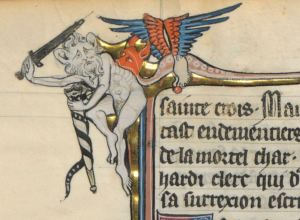 sainte crois. Mau
cast endementiers
de la mortel char.
hardi clerc qui d
sa surrexion escri